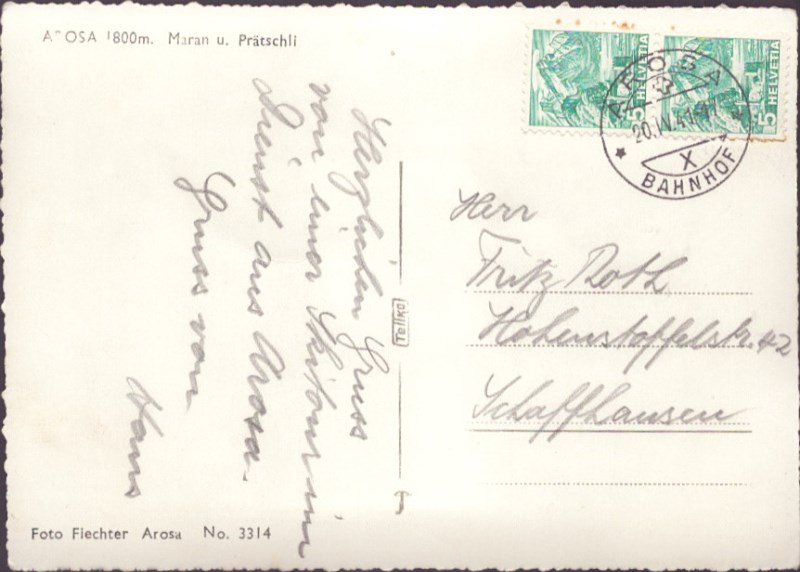 AROSA 1800m. Maran u. Prätschli
5 HELVETIA
5 HELVETIA
AROSA
3
20.IV.41
X
BAHNHOF
Herzlichen Gruss
von einer Skitour im
Dienst aus Arosa.
Gruss von
Hans
Tellko
Herr
Fritz Roth
Hohenstoffelstr. 42
Schaffhausen
Foto Fiechter Arosa No. 3314